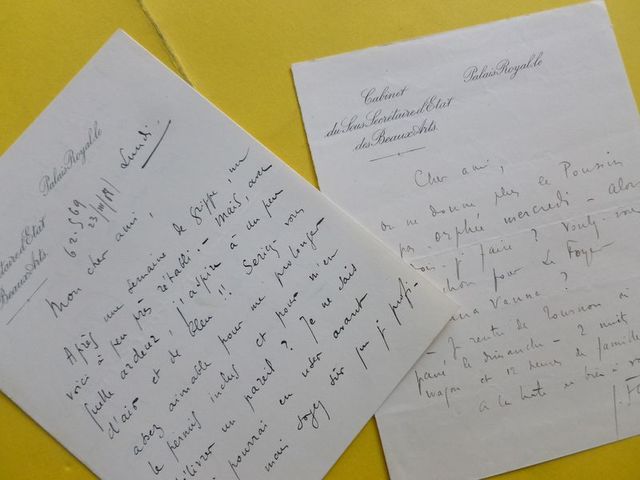 Palais Royal, le
Secrétaire d'Etat
Beaux Arts.
Lundi.
62.569
Mon cher ami,
Après une semaine de grippe, me
voici à peu près rétabli - mais, avec
quelle ardeur, j'aspire à un peu
d'air et de bleu !! Seriez-vous
assez aimable pour me prolonger
le permis inclus et pour m'en
délivrer un pareil ? Je ne sais
pourrai en user avant
mai soyez sûr que j'
Cabinet
du Sous Secrétaire d'Etat
des Beaux Arts.
Palais Royal, le
Cher ami,
on ne donne plus le Poussin
orphée mercredi - alors
faire ?
pour Le Foyer
?
rentré de Tournon
le dimanche - 2 nuits
wagon et 12 heures de
à la hâte et bien à